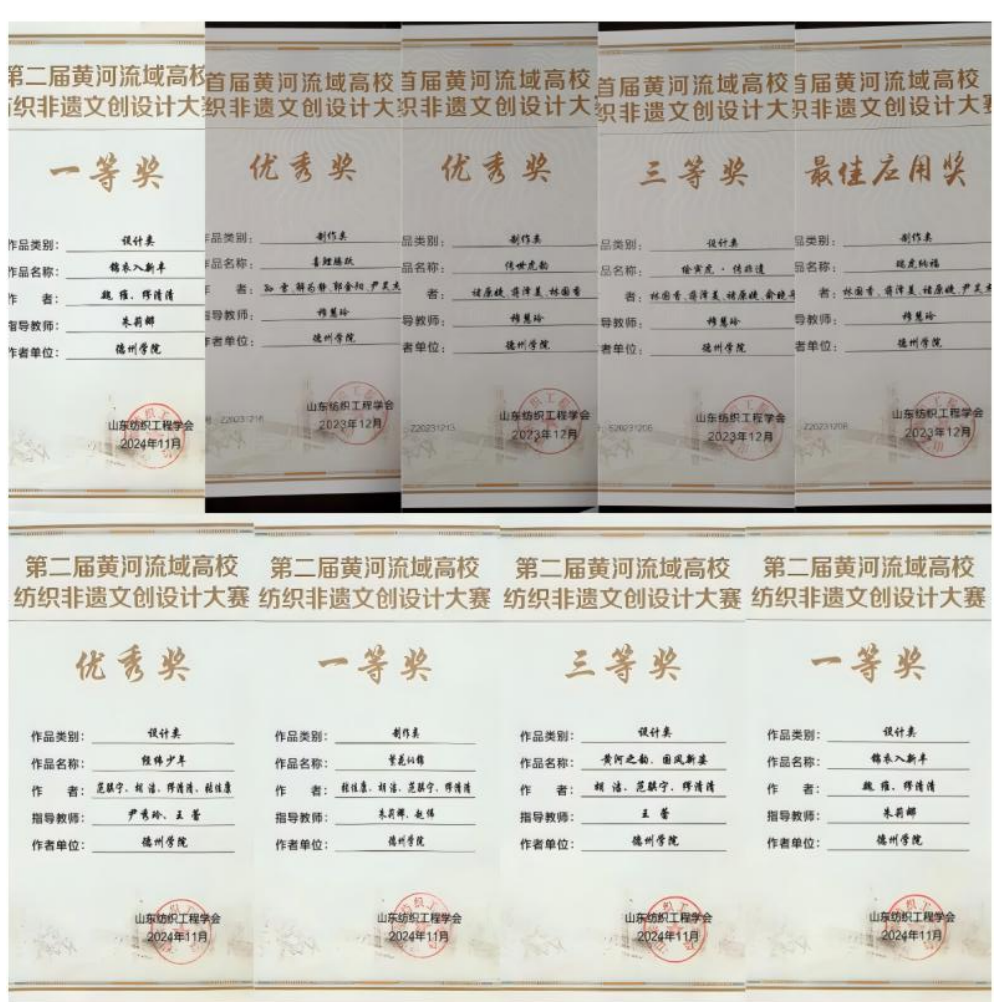 第二届黄河流域高校
纺织非遗文创设计大
一等奖
作品类别: 设计类
作品名称: 锦衣入新年
作 者: 魏 薇、缪清清
指导教师: 朱莉娜
作者单位: 德州学院
山东纺织工程学会
2024年11月
首届黄河流域高校
织非遗文创设计大
优秀奖
作品类别: 制作类
作品名称: 喜鲤腾跃
者:
指导教师: 穆慧玲
作者单位: 德州学院
号:Z20231216
山东纺织工程学会
2023年12月
首届黄河流域高校
织非遗文创设计大
优秀奖
品类别: 制作类
品名称: 传世虎韵
者: 林国香
导教师: 穆慧玲
者单位: 德州学院
:Z20231213
山东纺织工程学会
2023年12月
首届黄河流域高校
织非遗文创设计大
三等奖
品类别: 设计类
品名称: 绘寅虎·传非遗
者: 林国香
导教师: 穆慧玲
者单位: 德州学院
:S20231208
山东纺织工程学会
2023年12月
首届黄河流域高校
织非遗文创设计大赛
最佳应用奖
品类别: 制作类
品名称: 瑞虎纳福
者: 林国香
导教师: 穆慧玲
者单位: 德州学院
Z20231208
山东纺织工程学会
2023年12月
第二届黄河流域高校
纺织非遗文创设计大赛
优秀奖
作品类别: 设计类
作品名称: 经纬少年
作 者: 范骐宁、胡 洁、缪清清、张佳康
指导教师: 尹秀玲、王 蕾
作者单位: 德州学院
山东纺织工程学会
2024年11月
第二届黄河流域高校
纺织非遗文创设计大赛
一等奖
作品类别: 制作类
作品名称: 繁花似锦
作 者: 张佳康、胡洁、范骐宁、缪清清
指导教师: 朱莉娜、赵伟
作者单位: 德州学院
山东纺织工程学会
2024年11月
第二届黄河流域高校
纺织非遗文创设计大赛
三等奖
作品类别: 设计类
作品名称: 黄河之韵,国风新姿
作 者: 胡 洁、范骐宁、缪清清
指导教师: 王 蕾
作者单位: 德州学院
山东纺织工程学会
2024年11月
第二届黄河流域高校
纺织非遗文创设计大赛
一等奖
作品类别: 设计类
作品名称: 锦衣入新年
作 者: 魏 薇、缪清清
指导教师: 朱莉娜
作者单位: 德州学院
山东纺织工程学会
2024年11月